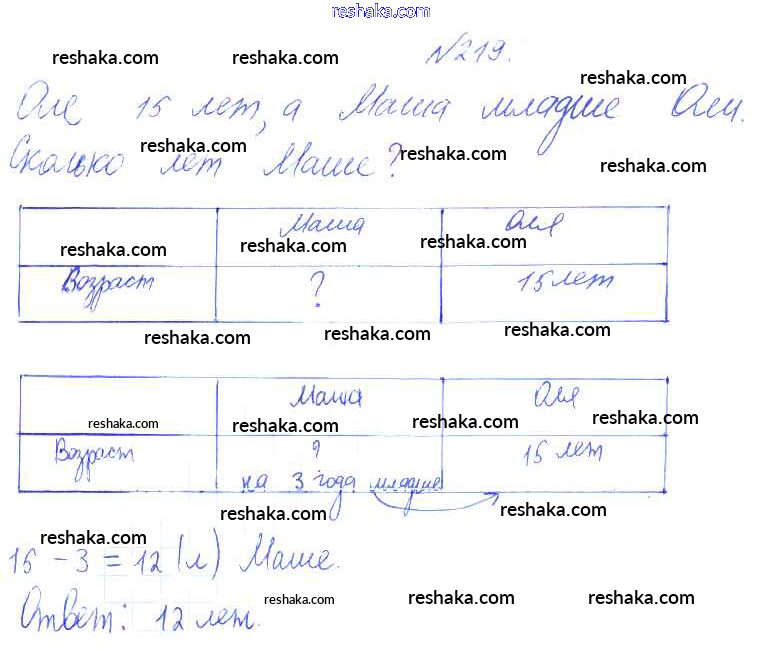 reshaka.com
№219.
reshaka.com reshaka.com reshaka.com
Оле 15 лет, а Маша младше Оли.
reshaka.com reshaka.com reshaka.com
Сколько лет Маше?
Маша Оля
reshaka.com reshaka.com reshaka.com
Возраст ? 15 лет
reshaka.com reshaka.com reshaka.com
Маша Оля
reshaka.com reshaka.com reshaka.com reshaka.com
Возраст ? 15 лет
на 3 года младше
reshaka.com reshaka.com
reshaka.com
15 - 3 = 12 (л) Маше.
reshaka.com reshaka.com reshaka.com
Ответ: 12 лет.